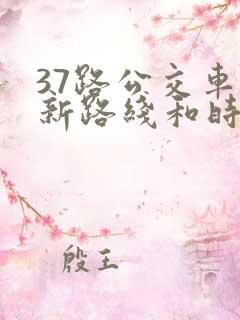 37路公交車
新路綫和時
殷王